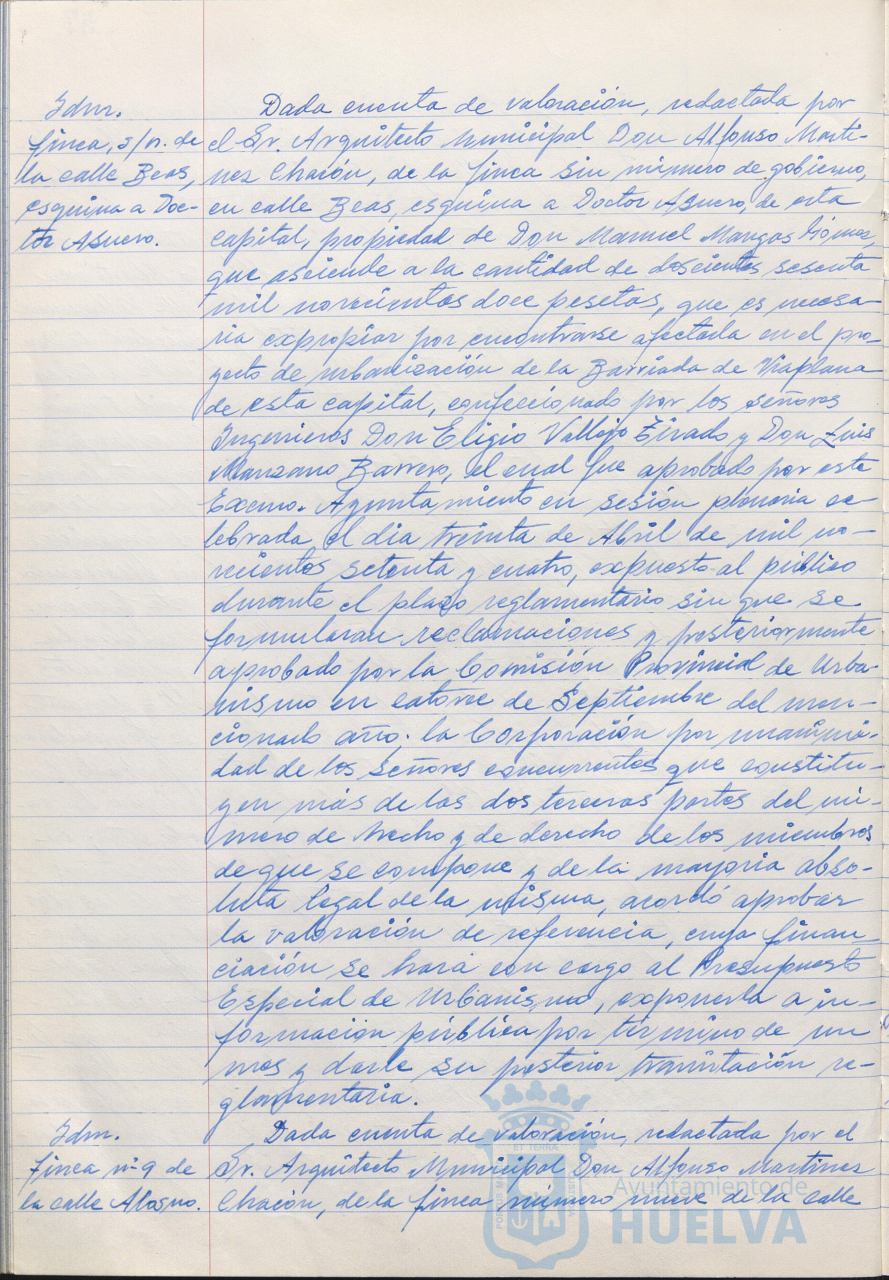 Idm.
finca, s/n. de
la calle Beas,
esquina a Doc-
tor Asuero.
Dada cuenta de valoración, redactada por
el Sr. Arquitecto Municipal Don Alfonso Martí-
nez Chacón, de la finca sin número de gobierno,
en calle Beas, esquina a Doctor Asuero, de esta
capital, propiedad de Don Manuel Mangas Gómez,
que asciende a la cantidad de doscientas sesenta
mil novecientas doce pesetas, que es necesa-
ria expropiar por encontrarse afectada en el pro-
yecto de urbanización de la Barriada de Viaplana
de esta capital, confeccionado por los señores
Ingenieros Don Eligio Vallejo Tirado y Don Luis
Manzano Barrero, el cual fue aprobado por este
Excmo. Ayuntamiento en sesión plenaria ce-
lebrada el dia treinta de Abril de mil no-
vecientos setenta y cuatro, expuesto al público
durante el plazo reglamentario sin que se
formularan reclamaciones y posteriormente
aprobado por la Comisión Provincial de Urba-
nismo en catorce de Septiembre del men-
cionado año; la Corporación por unanimi-
dad de los señores concurrentes que constitu-
yen más de las dos terceras partes del nú-
mero de hecho y de derecho de los miembros
de que se compone y de la mayoria abso-
luta legal de la misma, acordó aprobar
la valoración de referencia, cuya finan-
ciación se hará con cargo al Presupuesto
Especial de Urbanismo, exponerla a in-
formación pública por término de un
mes y darle su posterior tramitación re-
glamentaria.
Idm.
finca nº 9 de
la calle Alosno.
Dada cuenta de valoración, redactada por el
Sr. Arquitecto Municipal Don Alfonso Martínez
Chacón, de la finca número nueve de la calle
Ayuntamiento de
HUELVA